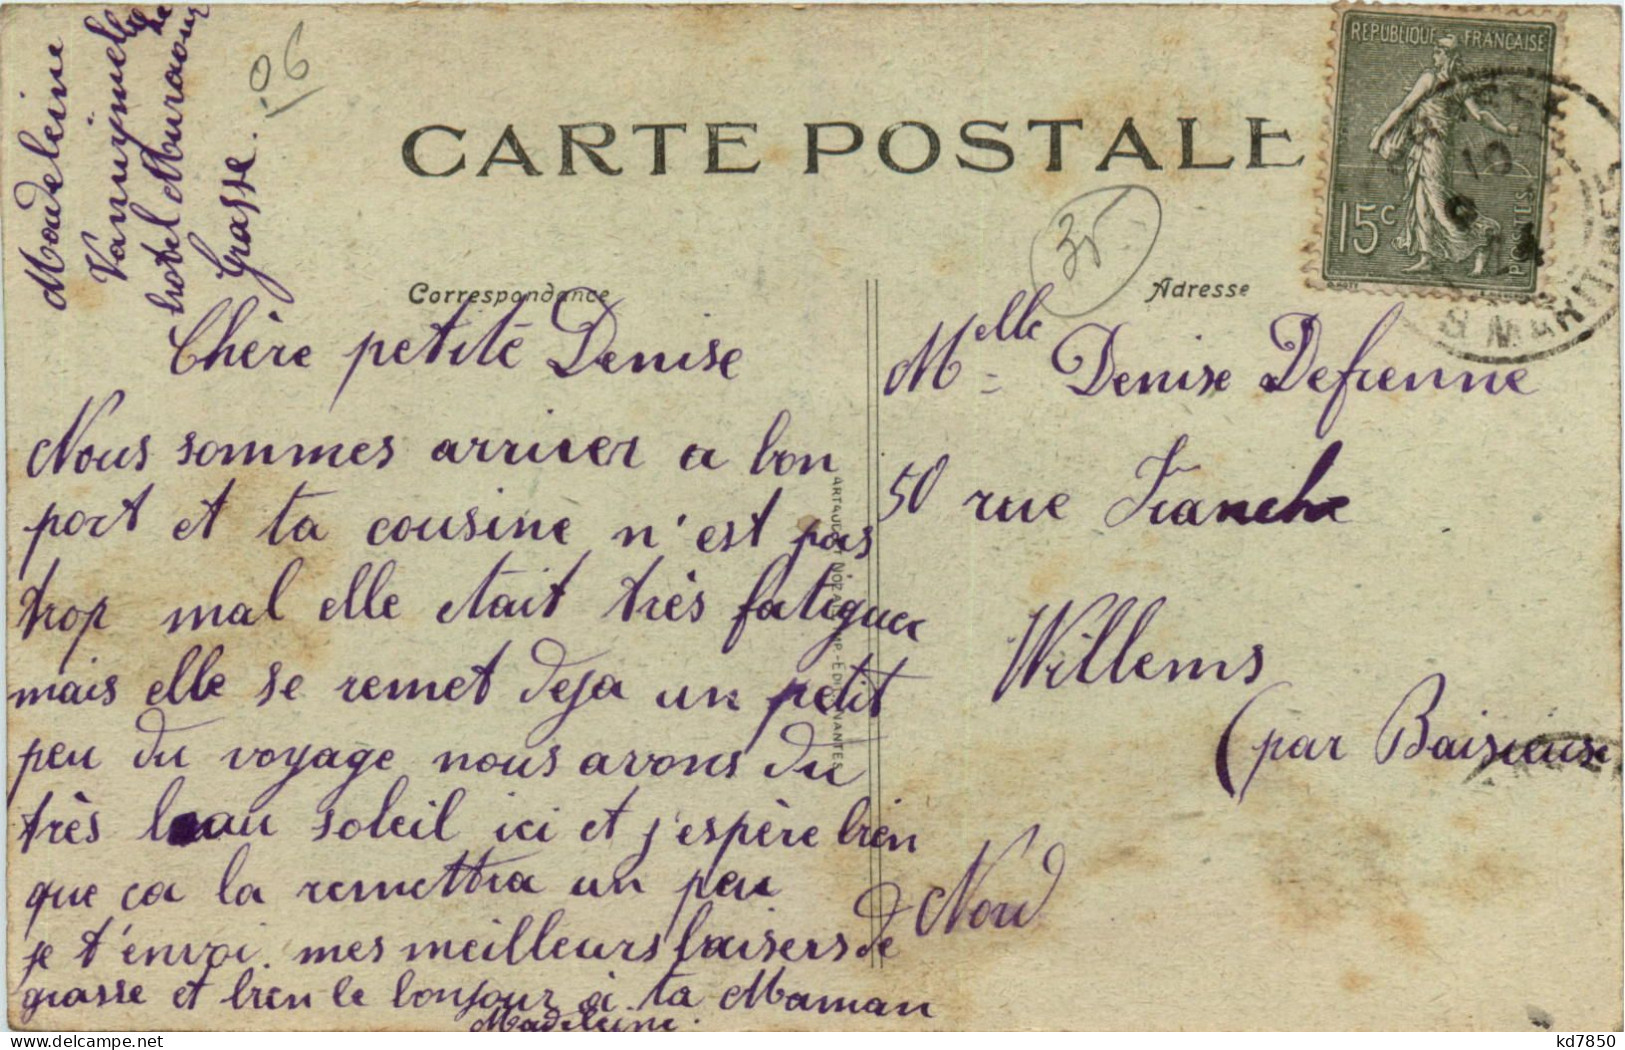 CARTE POSTALE
Correspondance
Adresse
RÉPUBLIQUE FRANÇAISE
15c
POSTES
MARITIMES
06
35
Madeleine
hotel
Grasse.
Chère petite Denise
Nous sommes arriver a bon
port et ta cousine n'est pas
trop mal elle etait très fatiguer
mais elle se remet deja un petit
peu du voyage nous avons du
très beau soleil ici et j'espère bien
que ca la remettra un peu
je t'envoi. mes meilleurs baisers de
grasse et bien le bonjour a ta Maman
Madeleine.
Melle Denise Defrenne
50 rue Franche
Willems
(par Baisieuse
Nord
NANTES
kd7850